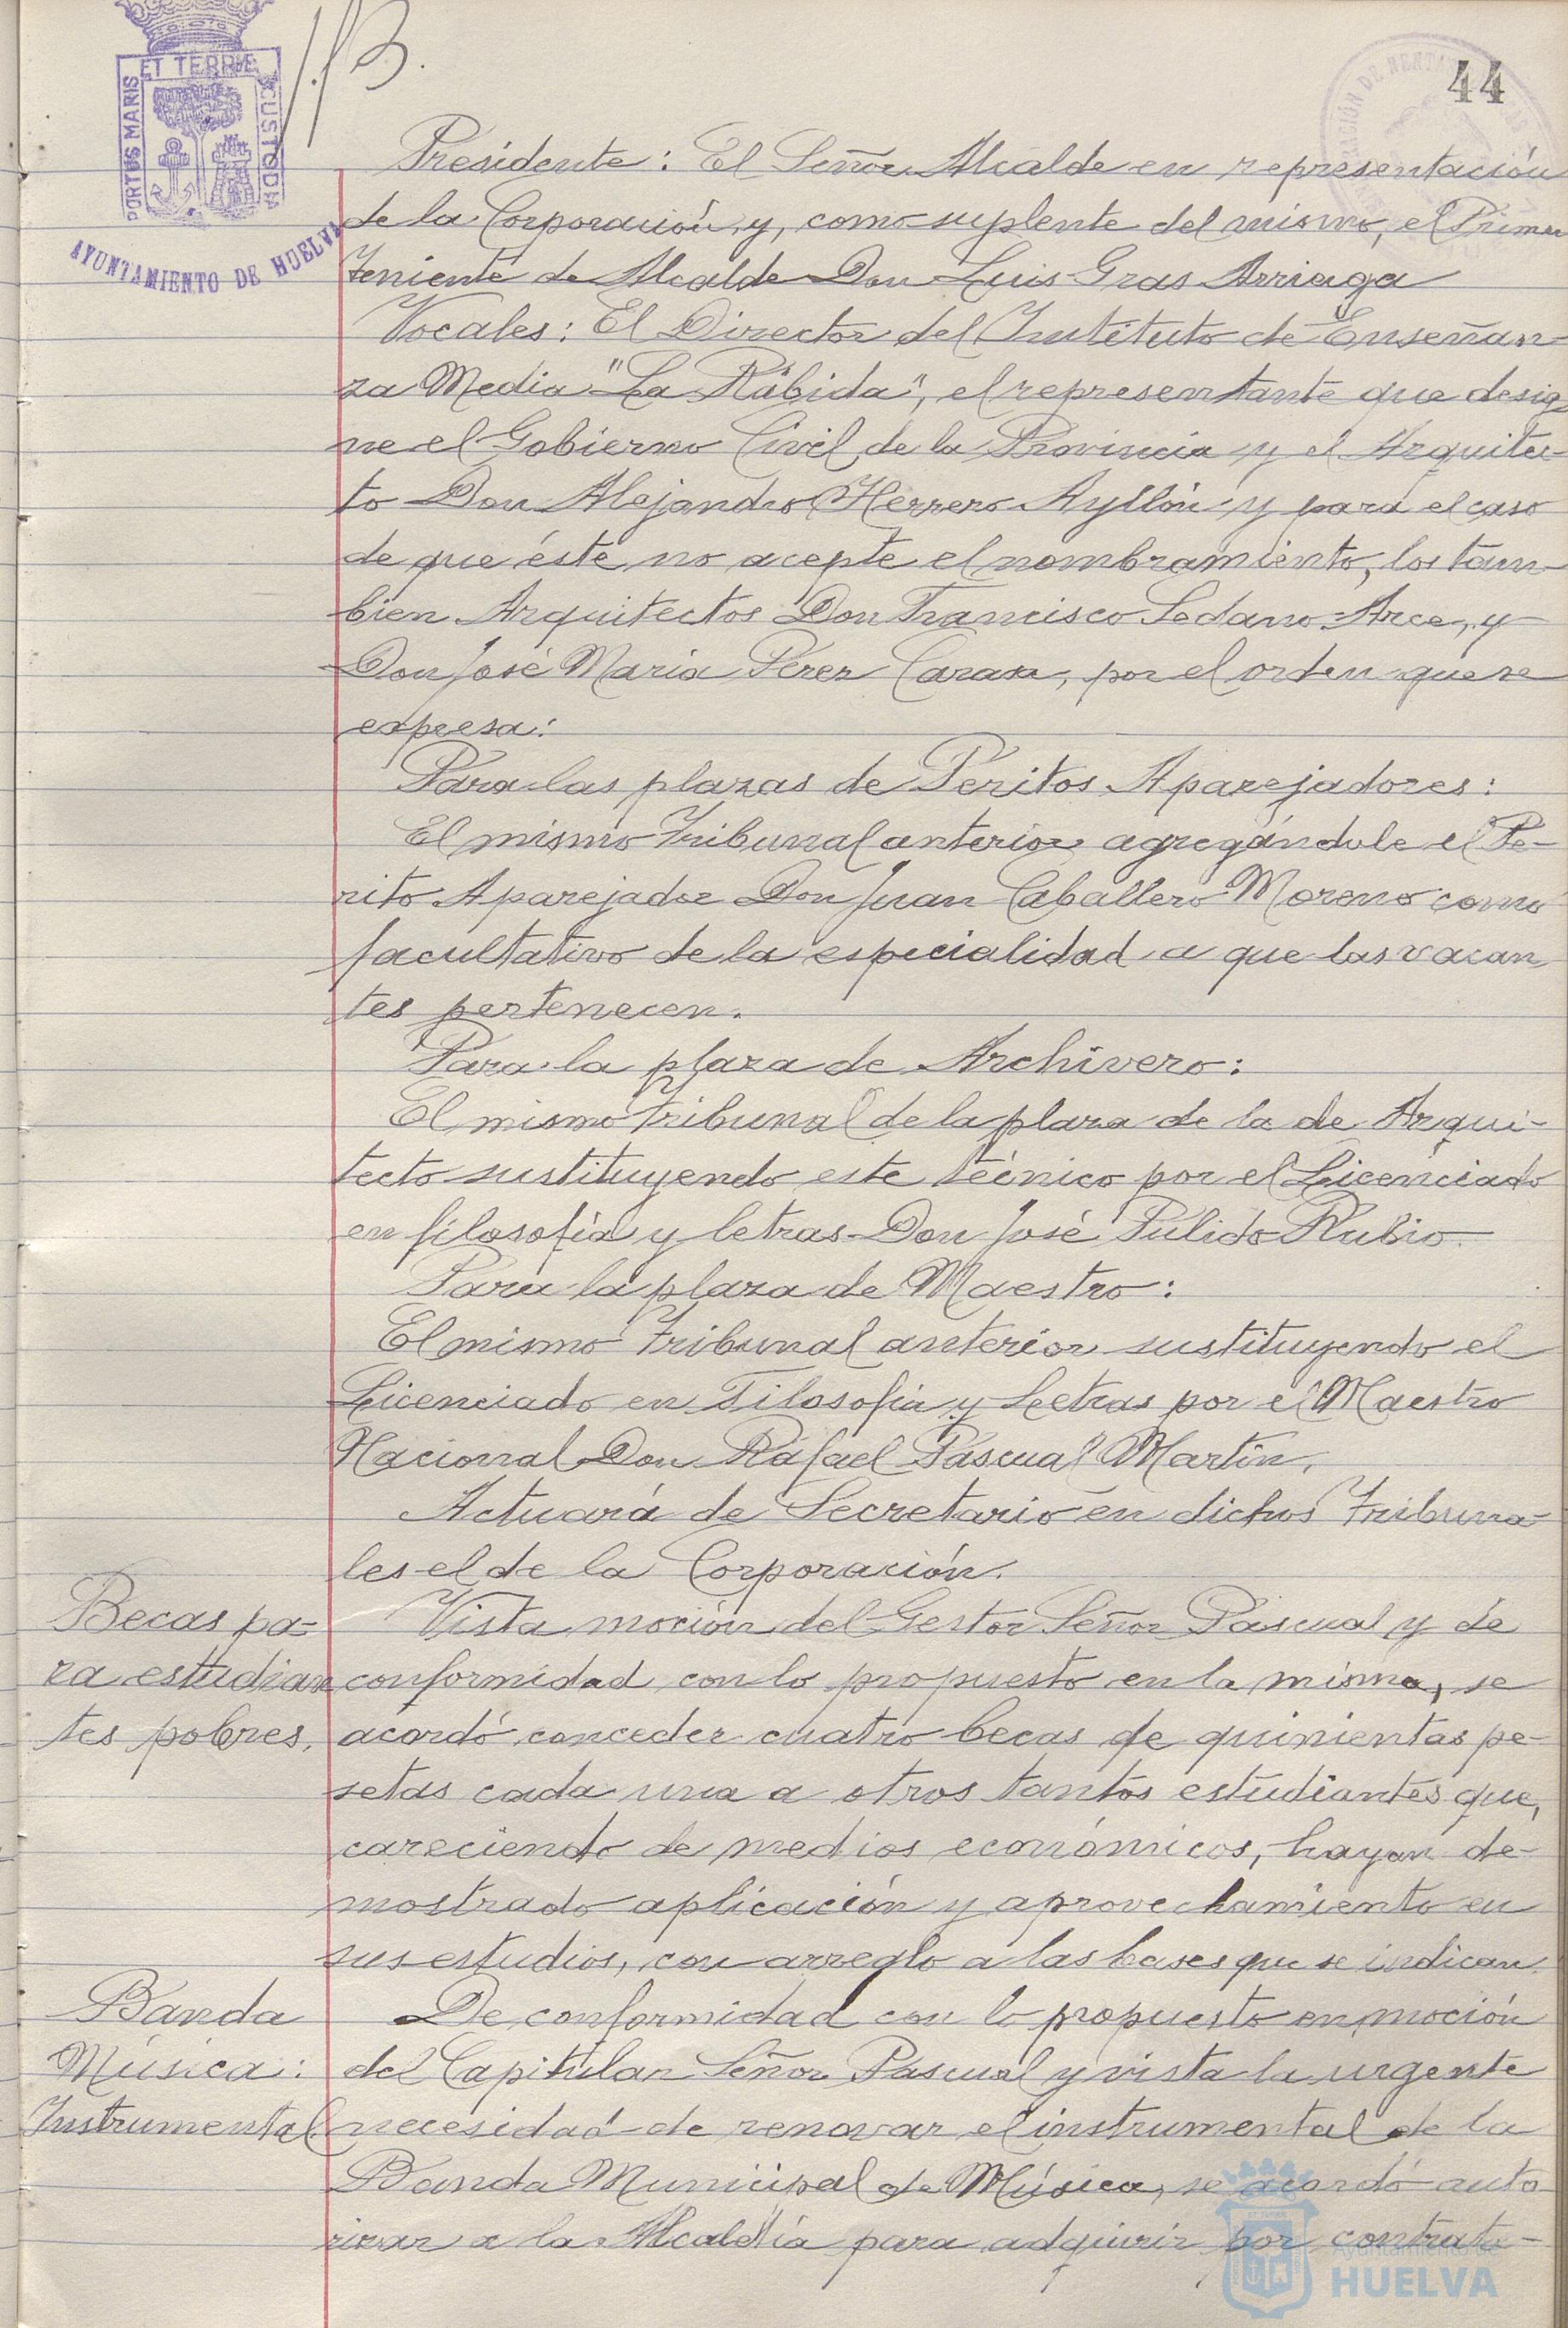 44
PORTUS MARIS ET TERRÆ CUSTODIA
AYUNTAMIENTO DE HUELVA
Presidente: El Señor Alcalde en representación
de la Corporación, y, como suplente del mismo, el Primer
Teniente de Alcalde Don Luis Gras Arriaga
Vocales: El Director del Instituto de Enseñan-
za Media "La Rábida", el representante que desig
ne el Gobierno Civil de la Provincia y el Arquitec-
to Don Alejandro Herrero Ayllón y para el caso
de que éste no acepte el nombramiento, los tam-
bien Arquitectos Don Francisco Sedano Arce, y
Don José Maria Perez Carasa, por el orden que se
expresa:
Para las plazas de Peritos Aparejadores:
El mismo Tribunal anterior agregándole el Pe-
rito Aparejador Don Juan Caballero Moreno como
facultativo de la especialidad a que las vacan
tes pertenecen.
Para la plaza de Archivero:
El mismo Tribunal de la plaza de la de Arqui-
tecto sustituyendo este técnico por el Licenciado
en filosofía y letras Don José Pulido Rubio.
Para la plaza de Maestro:
El mismo Tribunal anterior sustituyendo el
Licenciado en Filosofía y Letras por el Maestro
Nacional Don Rafael Pascual Martín.
Actuará de Secretario en dichos Tribuna-
les el de la Corporación.
Becas pa-
ra estudian
tes pobres.
Vista moción del Gestor Señor Pascual y de
conformidad con lo propuesto en la misma, se
acordó conceder cuatro becas de quinientas pe-
setas cada una a otros tantos estudiantes que,
careciendo de medios económicos, hayan de-
mostrado aplicación y aprovechamiento en
sus estudios, con arreglo a las bases que se indican.
Banda
Música:
Instrumental
De conformidad con lo propuesto en moción
del Capitular Señor Pascual y vista la urgente
necesidad de renovar el instrumental de la
Banda Municipal de Música, se acordó auto
rizar a la Alcaldía para adquirir por contrata-
Ayuntamiento de
HUELVA